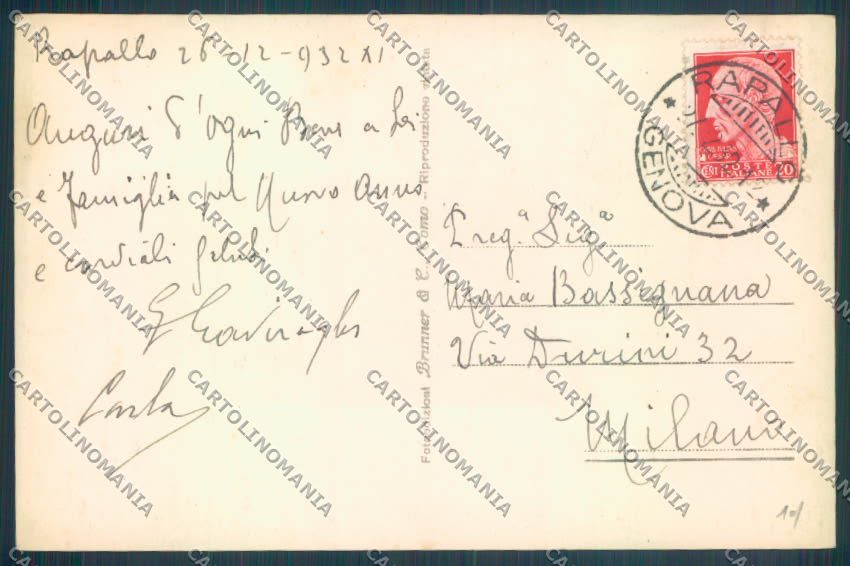 Rapallo 26-12-932 XI
Auguri d'ogni Bene a Lei
e famiglia pel Nuovo Anno
e cordiali saluti
Carla
Fotoedizioni Brunner & C. - Como - Riproduzione vietata
RAPALLO
GENOVA
POSTE
ITALIANE
CENT 20
Preg.ª Sig.ª
Maria Bassegnana
Via Durini 32
Milano
10/
CARTOLINOMANIA